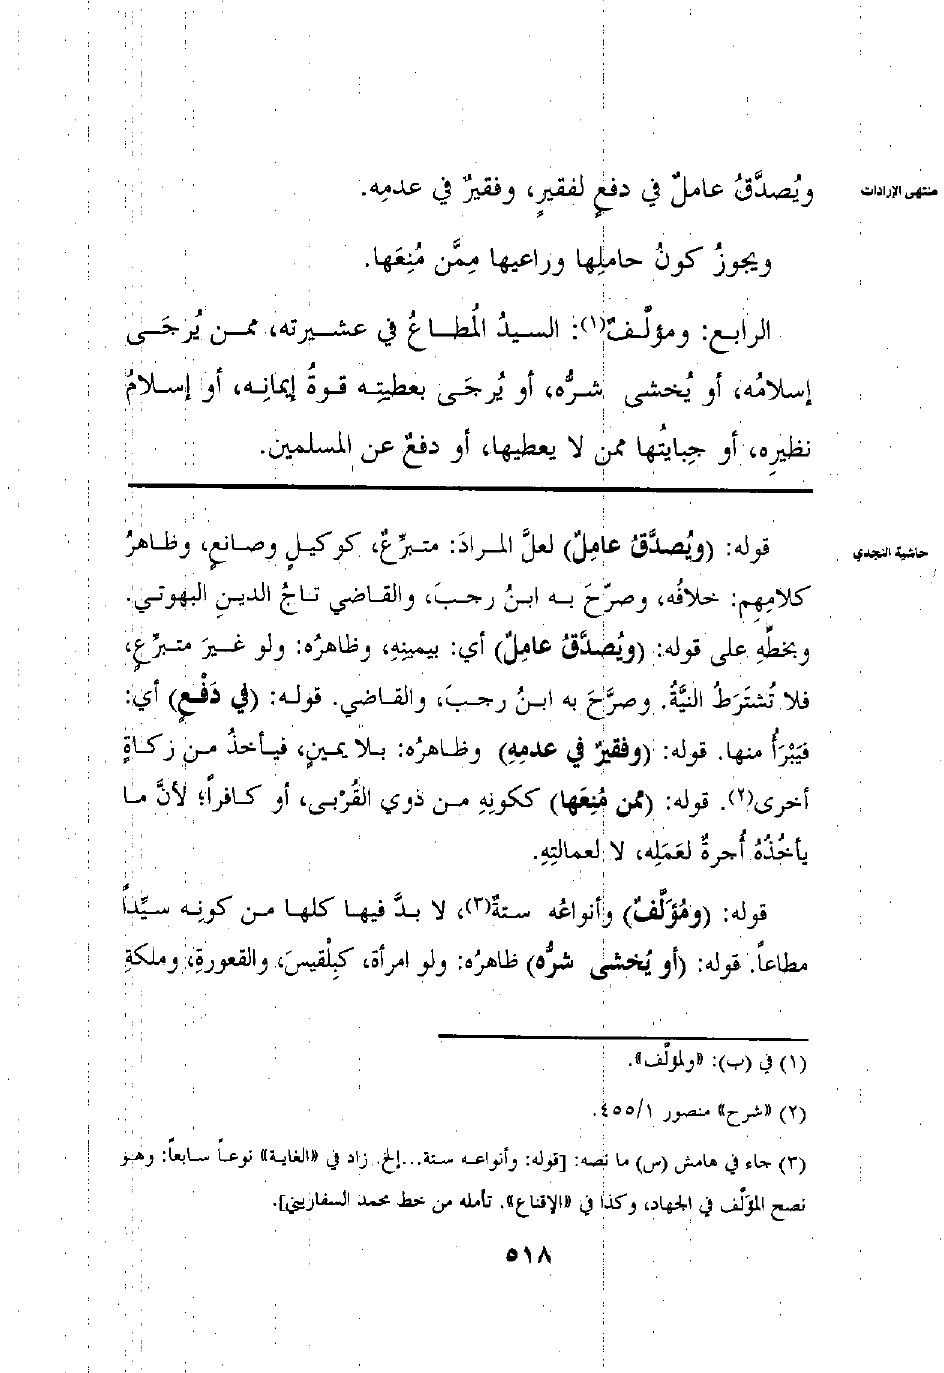 منتهى الإرادات
ويُصدَّقُ عاملٌ في دفعٍ لفقيرٍ، وفقيرٌ في عدمِه.
ويجوزُ كونُ حاملِها وراعيها مِمَّن مُنِعَها.
الرابع: ومؤلَّفٌ(١): السيدُ المُطاعُ في عشيرته، ممن يُرجَى
إسلامُه، أو يُخشى شرُّه، أو يُرجَى بعطيتِه قوةُ إيمانِه، أو إسلامُ
نظيرِه، أو جِبايتُها ممن لا يعطيها، أو دفعٌ عن المسلمين.
حاشية النجدي
قوله: (ويُصدَّقُ عامِلٌ) لعلَّ المرادَ: متبرِّعٌ، كوكيلٍ وصانعٍ، وظاهرُ
كلامِهم: خلافُه، وصرّحَ به ابنُ رجبَ، والقاضي تاجُ الدينِ البهوتي.
وبخطِّهِ على قوله: (ويُصدَّقُ عامِلٌ) أي: بيمينِهِ، وظاهرُه: ولو غيرَ متبرِّعٍ،
فلا تُشتَرَطُ النيَّةُ. وصرَّحَ به ابنُ رجبَ، والقاضي. قوله: (في دَفْعٍ) أي:
فَيَبْرَأُ منها. قوله: (وفقيرٌ في عدمِهِ) وظاهرُه: بلا يمينٍ، فيأخذُ من زكاةٍ
أخرى(٢). قوله: (ممن مُنِعَها) ككونِهِ من ذوي القُرْبى، أو كافراً؛ لأنَّ ما
يأخُذُهُ أُجرةٌ لعَمَلِه، لا لعمالتِهِ.
قوله: (ومُؤلَّفٌ) وأنواعُه ستةٌ(٣)، لا بدَّ فيها كلها من كونِه سيِّداً
مطاعاً. قوله: (أو يُخشى شرُّه) ظاهرُه: ولو امرأة، كبِلْقيسَ، والقعورةِ، وملكةِ
(١) في (ب): «ولمؤلَّف».
(٢) «شرح» منصور ٤٥٥/١.
(٣) جاء في هامش (س) ما نصه: [قوله: وأنواعه ستة...إلخ. زاد في «الغاية» نوعاً سابعاً: وهو
نصح المؤلَّف في الجهاد، وكذا في «الإقناع». تأمله من خط محمد السفاريني].
٥١٨